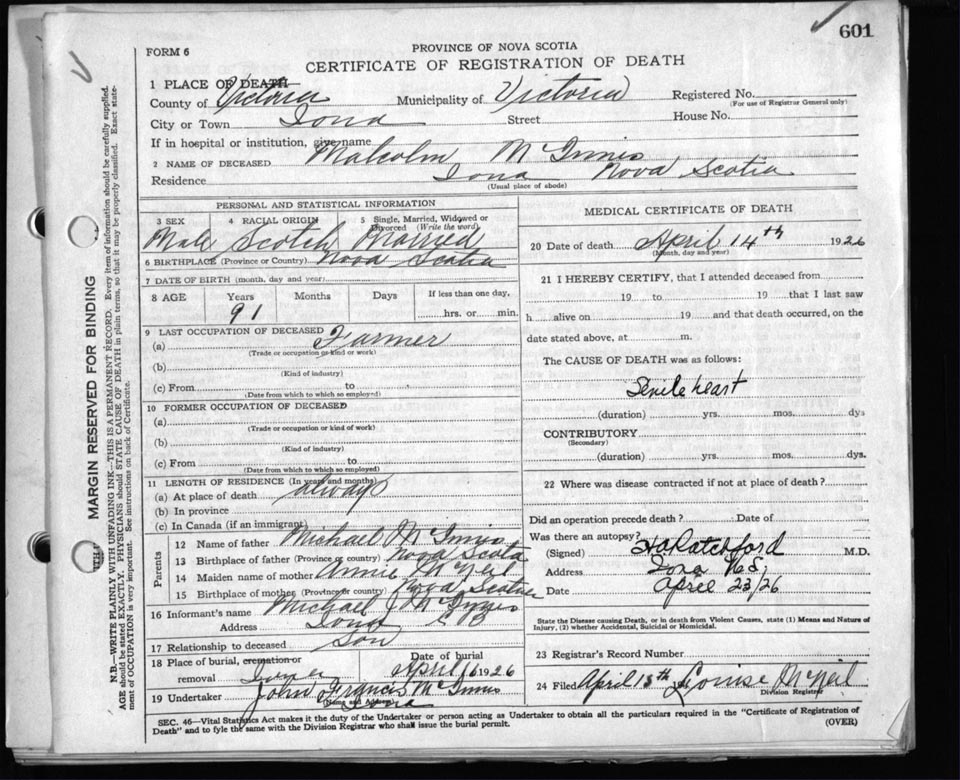 601
FORM 6
PROVINCE OF NOVA SCOTIA
CERTIFICATE OF REGISTRATION OF DEATH
1 PLACE OF DEATH
County of Victoria Municipality of Victoria Registered No.
(For use of Registrar General only)
City or Town Iona Street House No.
If in hospital or institution, give name
2 NAME OF DECEASED Malcolm McInnis
Residence Iona Nova Scotia
(Usual place of abode)
PERSONAL AND STATISTICAL INFORMATION
3 SEX 4 RACIAL ORIGIN 5 Single, Married, Widowed or Divorced (Write the word)
Male Scotch Married
6 BIRTHPLACE (Province or Country) Nova Scotia
7 DATE OF BIRTH (month, day and year)
8 AGE Years Months Days If less than one day,
91 hrs. or min.
9 LAST OCCUPATION OF DECEASED
(a) Farmer
(Trade or occupation or kind or work)
(b)
(Kind of industry)
(c) From to
(Date from which to which so employed)
10 FORMER OCCUPATION OF DECEASED
(a)
(Trade or occupation or kind of work)
(b)
(Kind of industry)
(c) From to
(Date from which to which so employed)
11 LENGTH OF RESIDENCE (In years and months)
(a) At place of death always
(b) In province
(c) In Canada (if an immigrant)
Parents
12 Name of father Michael McInnis
13 Birthplace of father (Province or country) Nova Scotia
14 Maiden name of mother Annie McNeil
15 Birthplace of mother (Province or country) Nova Scotia
16 Informant's name Michael J McInnis
Address Iona C B
17 Relationship to deceased Son
18 Place of burial, cremation or removal Iona Date of burial April 16 1926
19 Undertaker John Francis McInnis
(Name and Address)
MEDICAL CERTIFICATE OF DEATH
20 Date of death April 14th 1926
(Month, day and year)
21 I HEREBY CERTIFY, that I attended deceased from
19 to 19 that I last saw
h alive on 19 and that death occurred, on the
date stated above, at m.
The CAUSE OF DEATH was as follows:
Senile heart
(duration) yrs. mos. dys
CONTRIBUTORY
(Secondary)
(duration) yrs. mos. dys.
22 Where was disease contracted if not at place of death?
Did an operation precede death? Date of
Was there an autopsy?
(Signed) Ratchford M.D.
Address Iona N S,
Date April 23/26
State the Disease causing Death, or in death from Violent Causes, state (1) Means and Nature of
Injury, (2) whether Accidental, Suicidal or Homicidal.
23 Registrar's Record Number
24 Filed April 18th Louise McNeil
Division Registrar
SEC. 46—Vital Statistics Act makes it the duty of the Undertaker or person acting as Undertaker to obtain all the particulars required in the "Certificate of Registration of
Death" and to fyle the same with the Division Registrar who shall issue the burial permit.
(OVER)
MARGIN RESERVED FOR BINDING
N.B.—WRITE PLAINLY WITH UNFADING INK—THIS IS A PERMANENT RECORD. Every item of information should be carefully supplied.
AGE should be stated EXACTLY. PHYSICIANS should STATE CAUSE OF DEATH in plain terms, so that it may be properly classified. Exact state-
ment of OCCUPATION is very important. See instructions on back of Certificate.